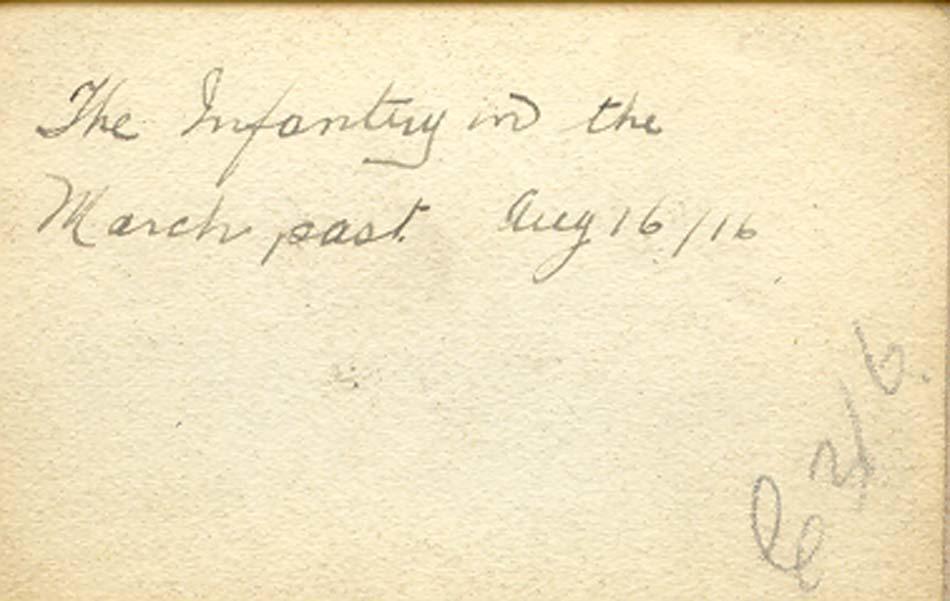 The Infantry in the
March past. Aug 16/16